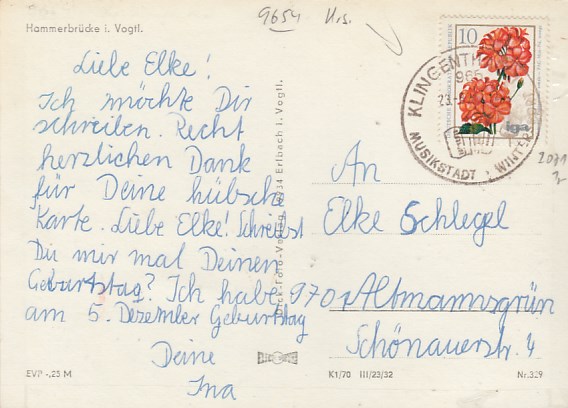 9654
Hammerbrücke i. Vogtl.
Liebe Elke!
Ich möchte Dir
schreiben. Recht
herzlichen Dank
für Deine hübsche
Karte. Liebe Elke! Schreibst
Du mir mal Deinen
Geburtstag? Ich habe
am 5. Dezember Geburtstag
Deine
Ina
10
iga
KLINGENTH
MUSIKSTADT
WINTER
An
Elke Schlegel
9701 Altmannsgrün
Schönauerstr. 4
Erlbach i. Vogtl.
EVP -.25 M
K1/70 III/23/32
Nr. 329